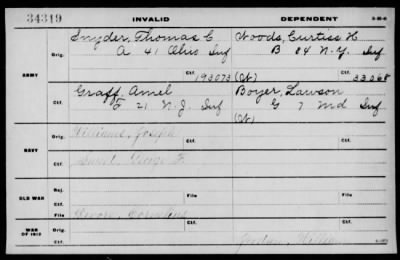 34319 INVALID DEPENDENT 3-25-6
Snyder, Thomas C Woods, Curtiss H
Orig. A 41 Ohio Inf B 84 N.Y. Inf
ARMY Ctf. 193073 (W) Ctf. 33068
Graff, Amel Boyer, Lawson
Orig. F 21 N.J. Inf G 7 Md Inf
Ctf. (W) Ctf.
Williams, Joseph
Orig.
NAVY George F.
Ctf.
Rej.
OLD WAR Ctf. File Ctf. File
Cornelius
Orig.
WAR OF 1812 Ctf. Ctf.
William